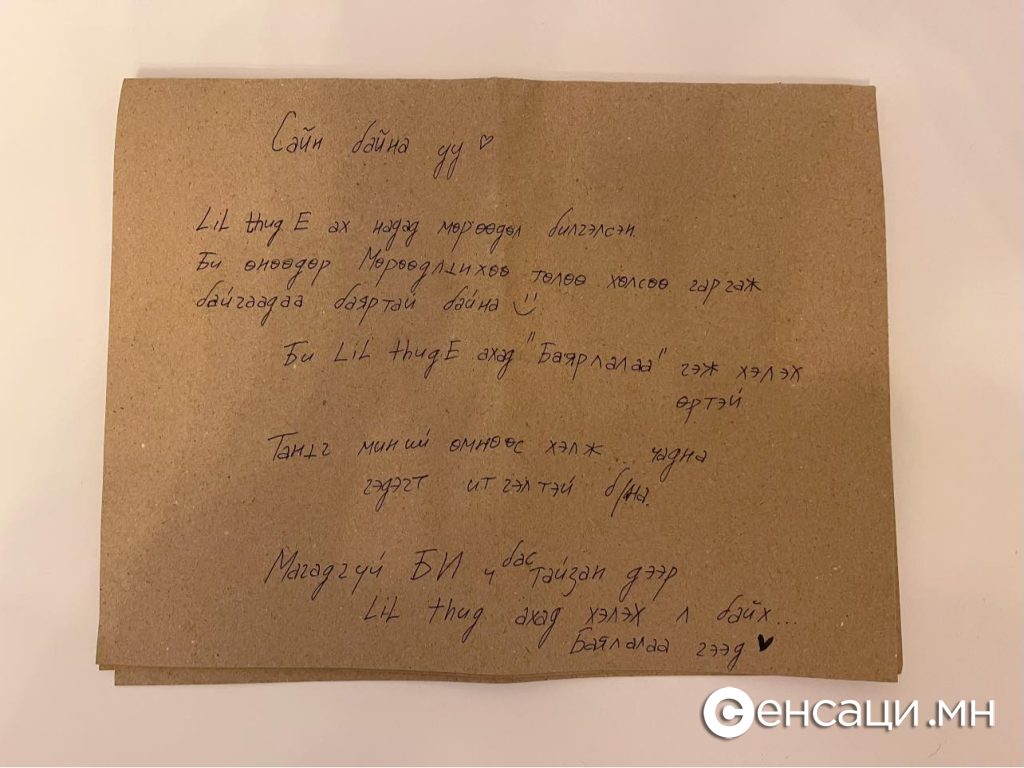 Сайн байна уу ♡
LiL thugE ах надад мөрөөдөл билгэлсэн
Би өнөөдөр Мөрөөдлынхөө төлөө хөлсөө гаргаж
байгаадаа баяртай байна
Би LiL thugE ахад "Баярлалаа" гэж хэлэх
өртэй
Таныг миний өмнөөс хэлж... чадна
гэдэгт итгэлтэй б/на.
Магадгүй БИ ч бас тайзан дээр
LiL thug ахад хэлэх л байх...
Баялалаа гээд ♥
сенсаци.мн